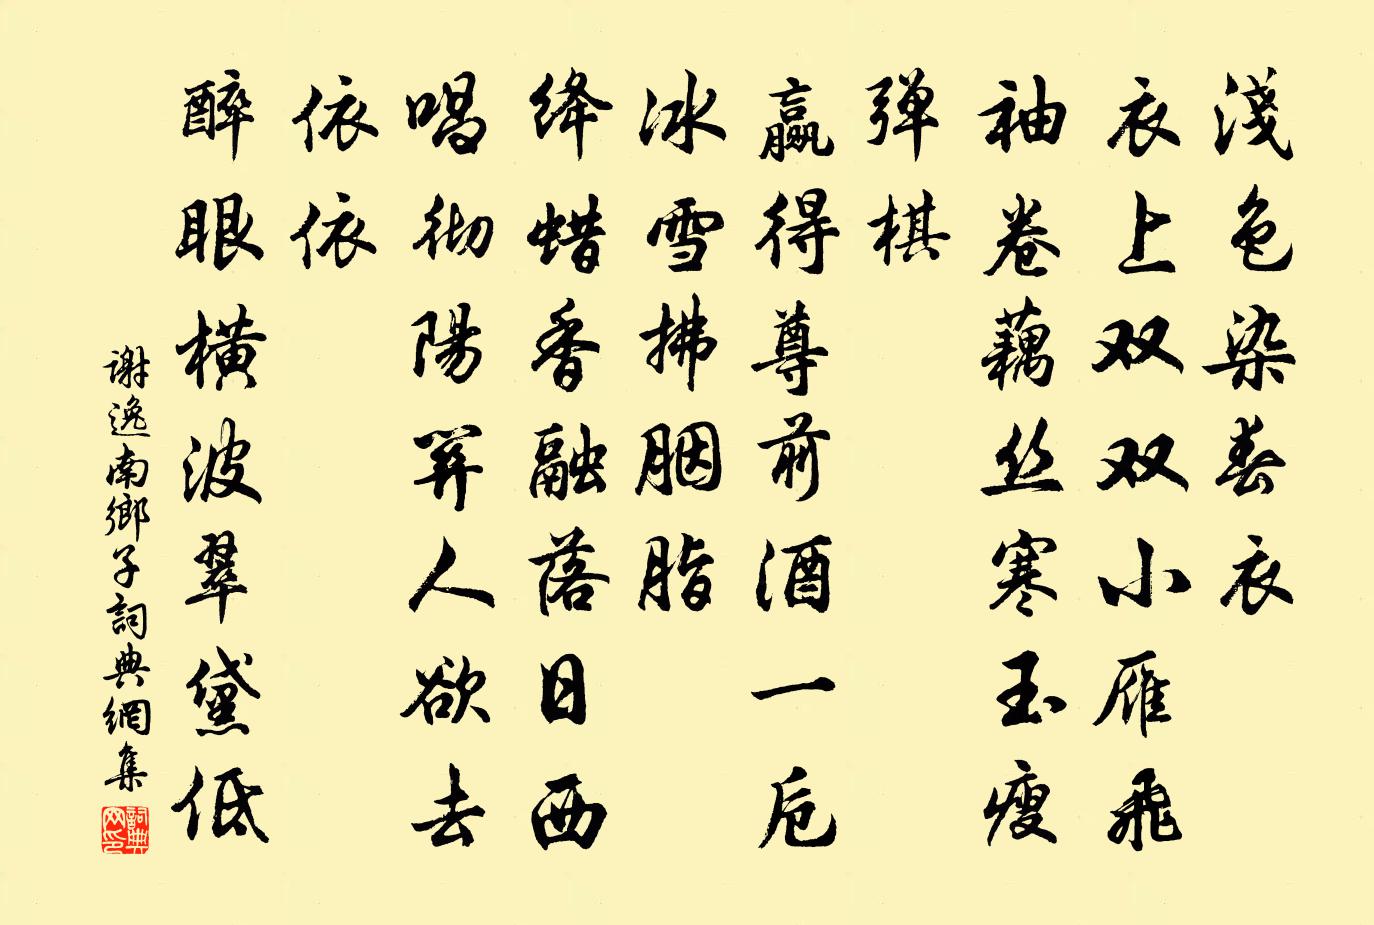 淺色染春衣
衣上双双小雁飛
袖卷藕丝寒玉瘦
弹棋
赢得尊前酒一卮
冰雪拂胭脂
绛蜡香融落日西
唱彻陽関人欲去
依依
醉眼横波翠黛低
謝逸南鄉子詞典網集
詞典网印